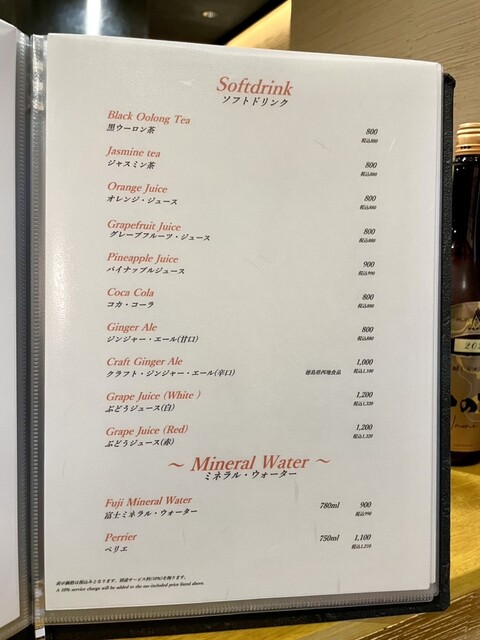 Softdrink
ソフトドリンク
Black Oolong Tea
黒ウーロン茶 800
税込880
Jasmine tea
ジャスミン茶 800
税込880
Orange Juice
オレンジ・ジュース 800
税込880
Grapefruit Juice
グレープフルーツ・ジュース 800
税込880
Pineapple Juice
パイナップルジュース 900
税込990
Coca Cola
コカ・コーラ 800
税込880
Ginger Ale
ジンジャー・エール(甘口) 800
税込880
Craft Ginger Ale
クラフト・ジンジャー・エール(辛口) 徳島県西地食品 1,000
税込1,100
Grape Juice (White )
ぶどうジュース(白) 1,200
税込1,320
Grape Juice (Red)
ぶどうジュース(赤) 1,200
税込1,320
～ Mineral Water ～
ミネラル・ウォーター
Fuji Mineral Water
富士ミネラル・ウォーター 780ml 900
税込990
Perrier
ペリエ 750ml 1,100
税込1,210
表示価格は税込みとなります。別途サービス料(10%)を頂きます。
A 10% service charge will be added to the tax-included price listed above.